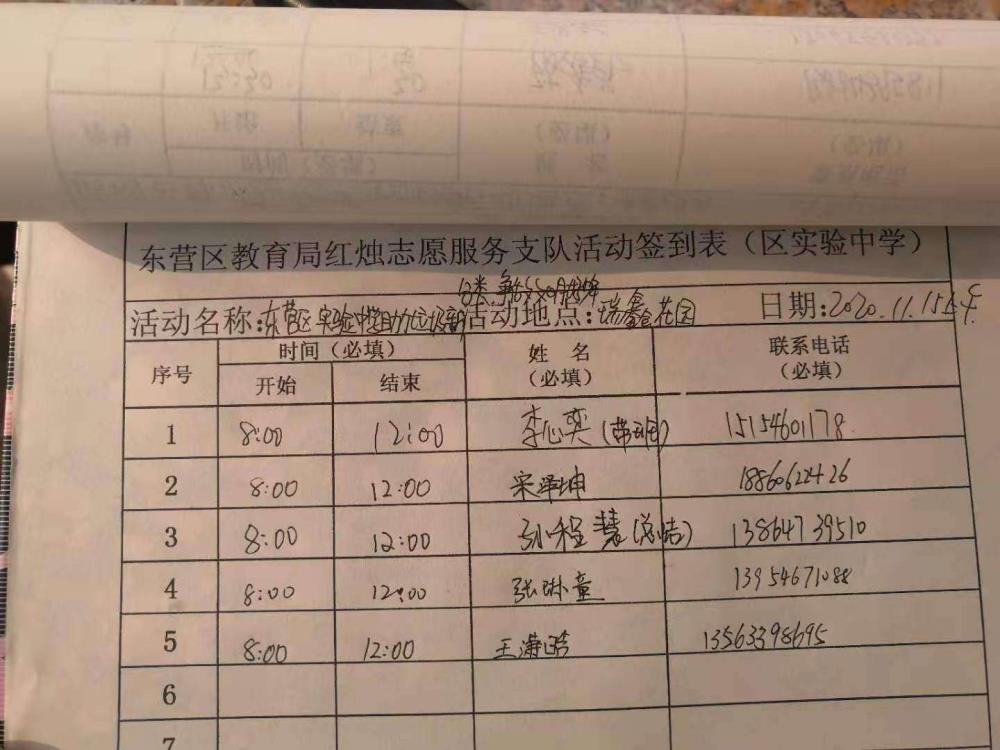 东营区教育局红烛志愿服务支队活动签到表（区实验中学）
活动名称:东营区实验中学助力垃圾 活动地点:瑞鑫花园 日期:2020.11.15
序号 时间（必填） 姓名（必填） 联系电话（必填）
开始 结束
1 8:00 12:00 李心奕(带班) 15154601178
2 8:00 12:00 宋泽坤 18860622426
3 8:00 12:00 孙程慧(总结) 13864739510
4 8:00 12:00 张琳童 13954671088
5 8:00 12:00 王潇晗 13563398695
6
7